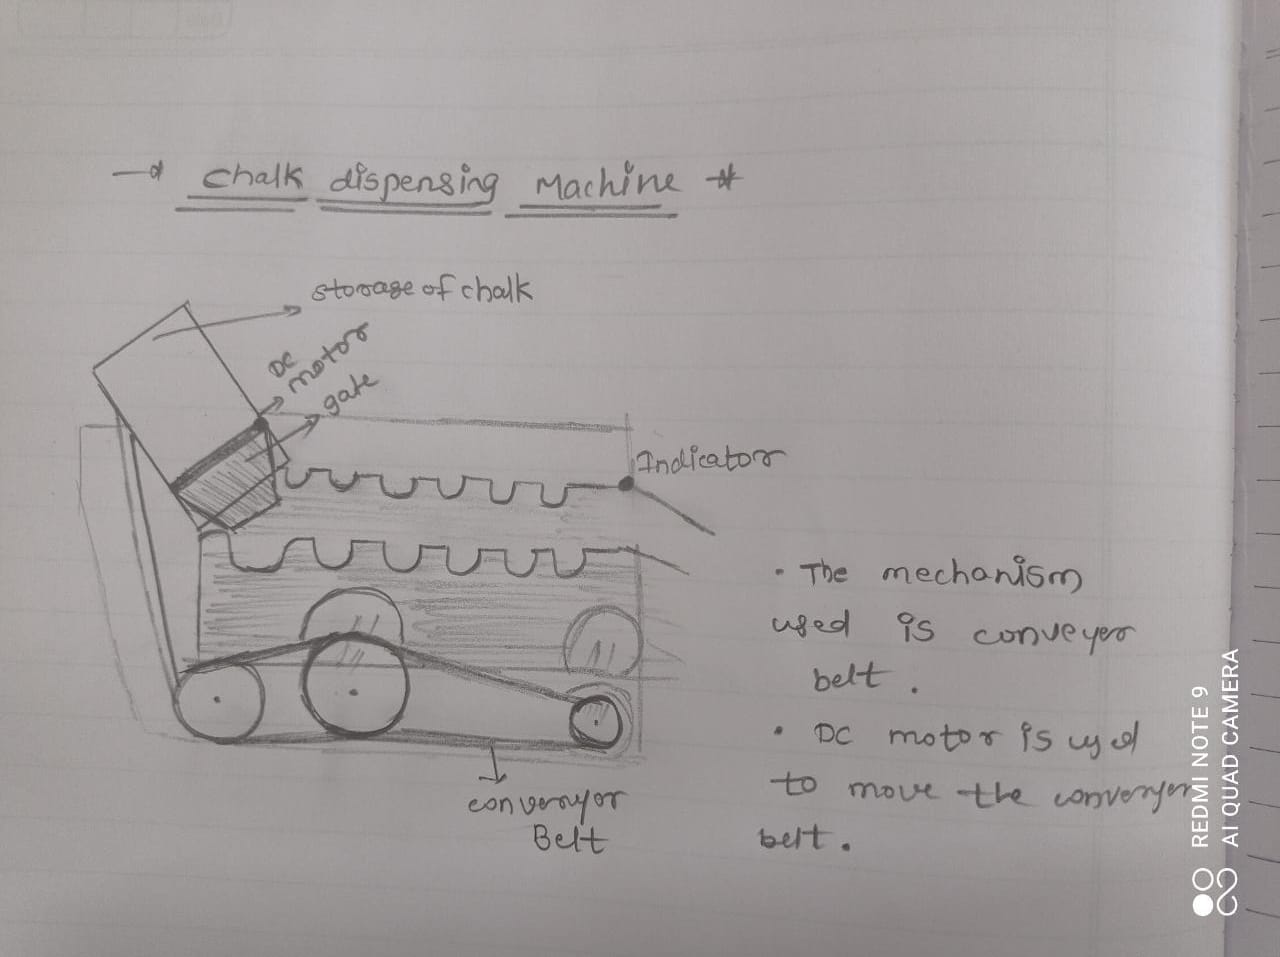 chalk dispensing Machine
storage of chalk
DC
motor
gate
Indicator
conveyor
Belt
• The mechanism
used is conveyer
belt.
• DC motor is used
to move the conveyer
belt.
REDMI NOTE 9
AI QUAD CAMERA